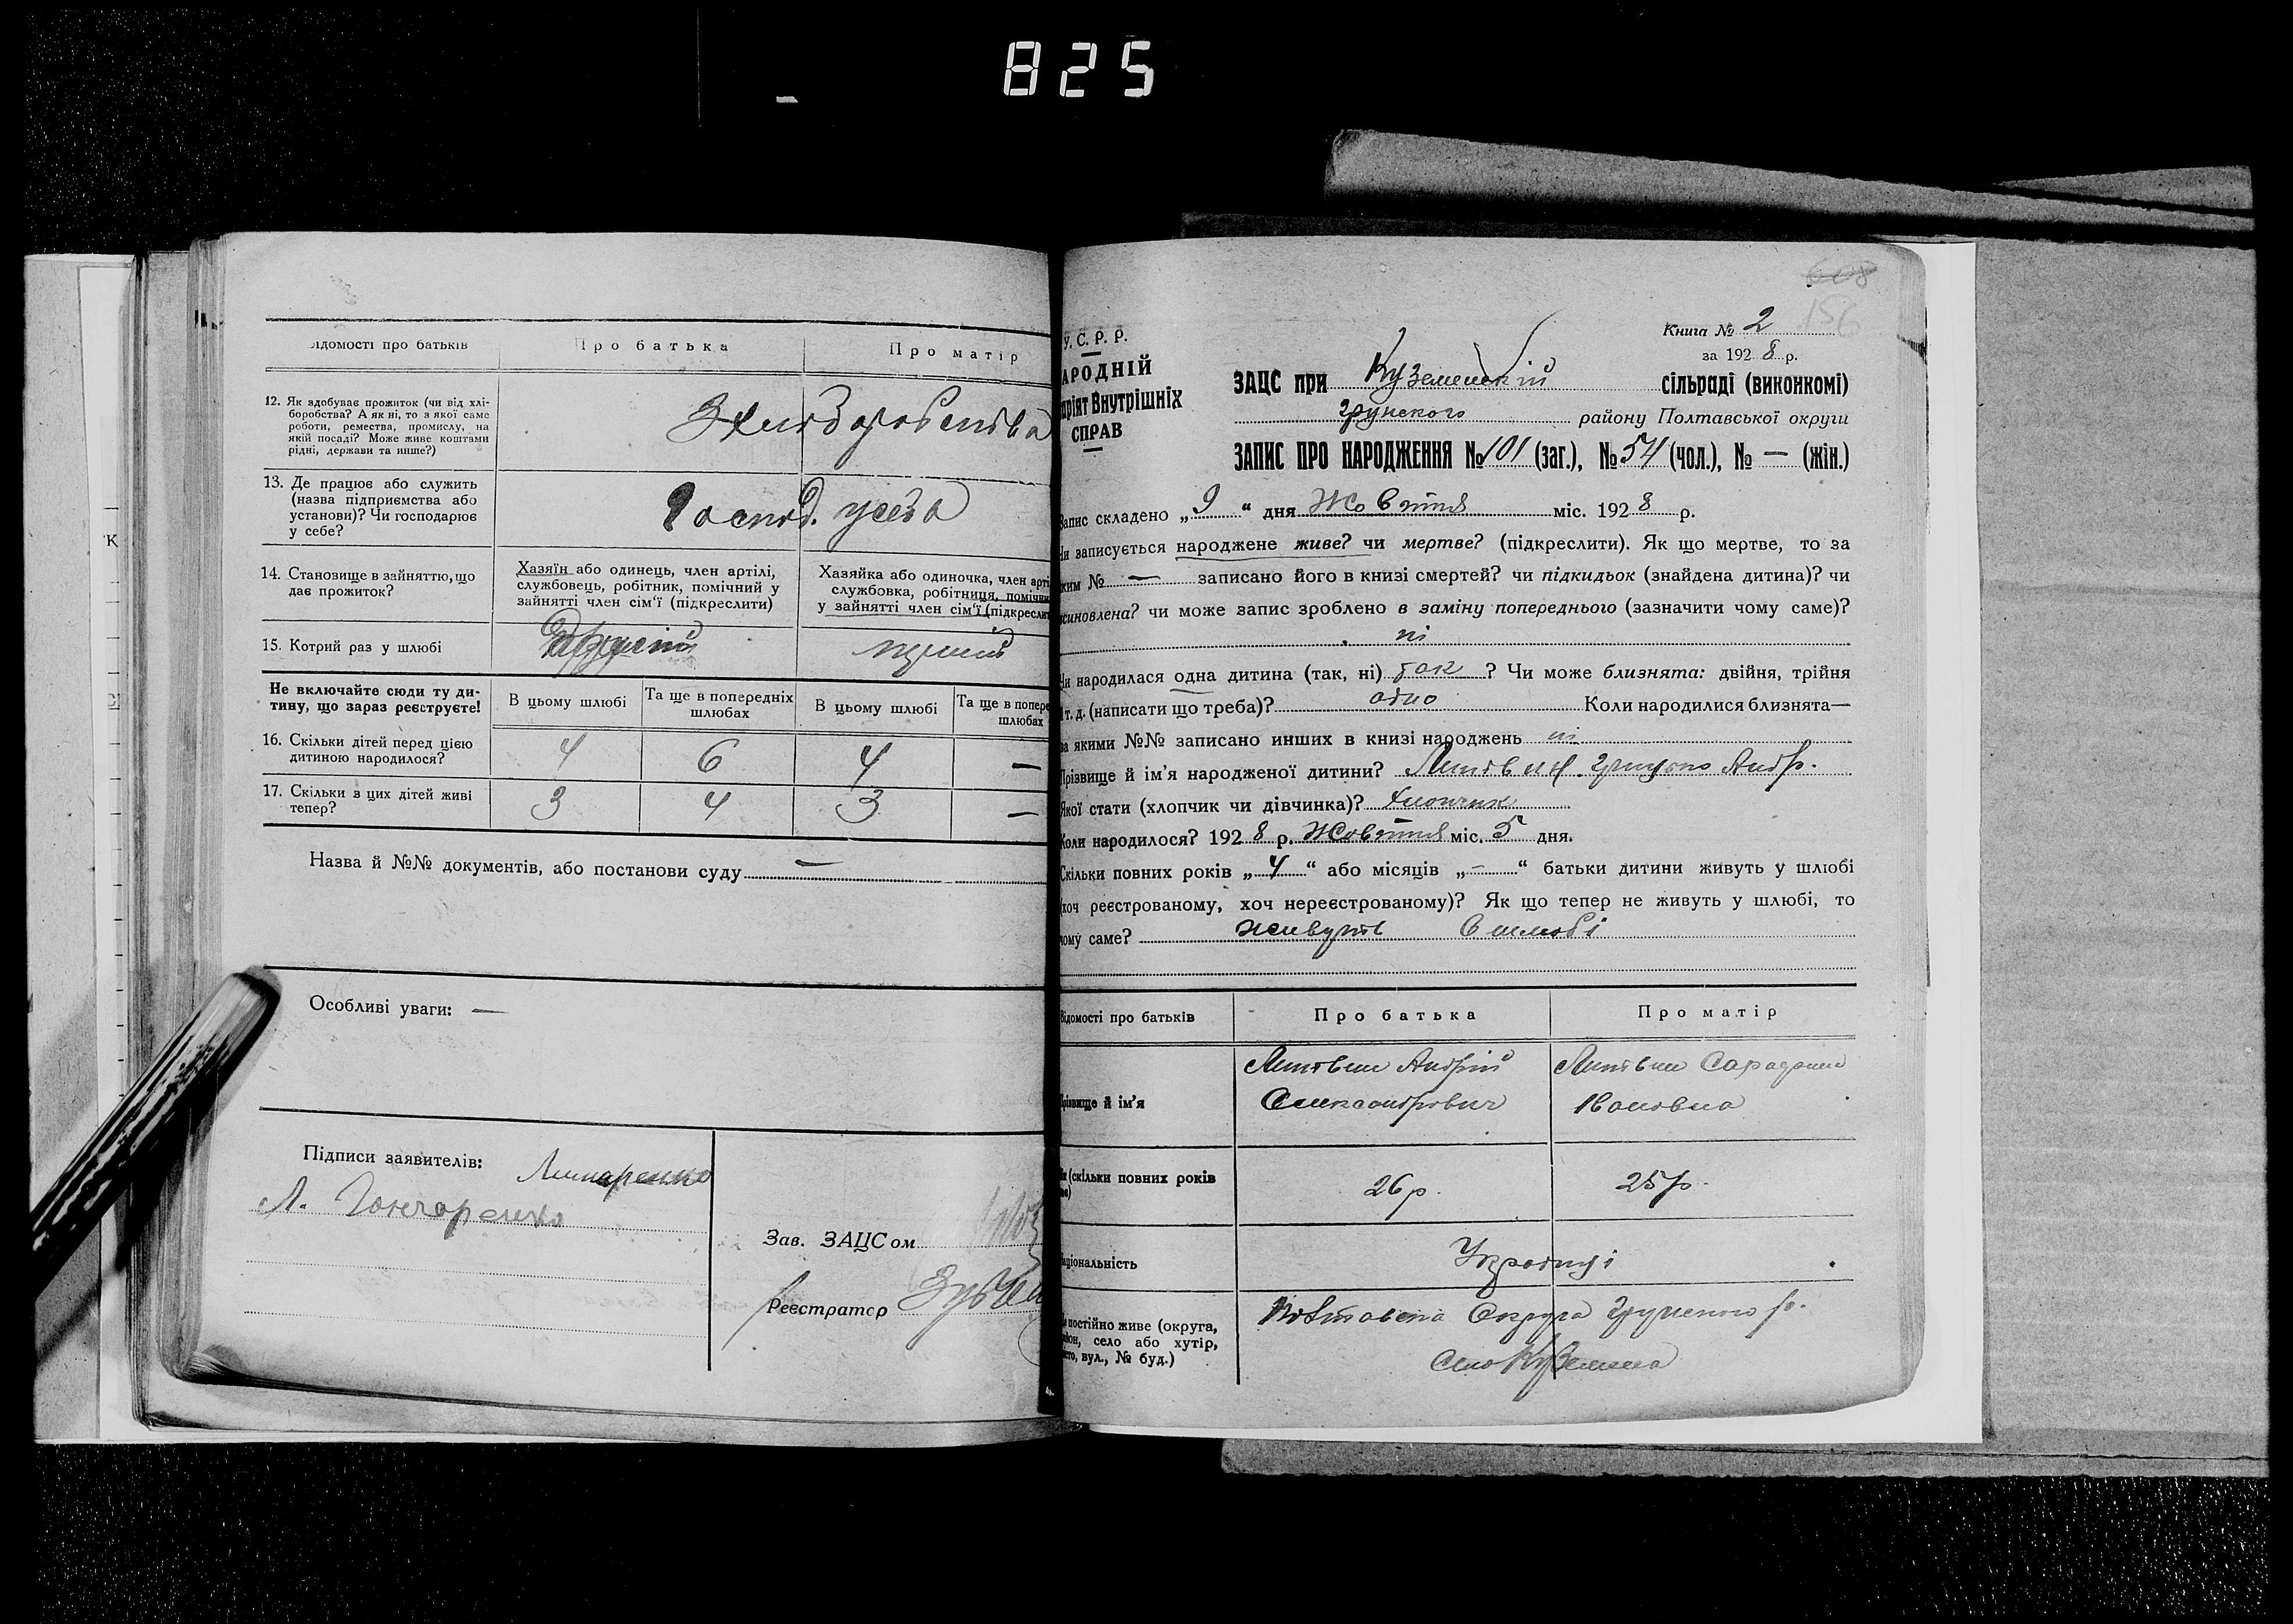 825
Відомості про батьків
Про батька
Про матір
12. Як здобуває прожиток (чи від хлі-
боробства? А як ні, то з якої саме
роботи, ремества, промислу, на
якій посаді? Може живе коштами
рідні, держави та инше?)
З хліборобства
13. Де працює або служить
(назва підприємства або
установи)? Чи господарює
у себе?
Господ. у себе
14. Становище в зайняттю, що
дає прожиток?
Хазяїн або одинець, член артілі,
службовець, робітник, помічний у
зайнятті член сім'ї (підкреслити)
Хазяйка або одиночка, член арті
службовка, робітниця, помічни
у зайнятті член сім'ї (підкресли
15. Котрий раз у шлюбі
Другий
перший
Не включайте сюди ту ди-
тину, що зараз реєструєте!
В цьому шлюбі
Та ще в попередніх
шлюбах
В цьому шлюбі
Та ще в попере
шлюбах
16. Скільки дітей перед цією
дитиною народилося?
4 6 4 —
17. Скільки з цих дітей живі
тепер?
3 4 3 —
Назва й №№ документів, або постанови суду —
Особливі уваги: —
Підписи заявителів:
Л. Гончаренко
Зав. ЗАЦСом
Реєстратор
608
156
У. С. Р. Р.
АРОДНІЙ
ріят Внутрішніх
СПРАВ
Книга № 2
за 1928 р.
ЗАЦС при Куземенскій сільраді (виконкомі)
Грунского району Полтавської округи
ЗАПИС ПРО НАРОДЖЕННЯ № 101 (заг.), № 54 (чол.), № — (жін.)
Запис складено „9" дня Жовтня міс. 1928 р.
Чи записується народжене живе? чи мертве? (підкреслити). Як що мертве, то за
яким № — записано його в книзі смертей? чи підкидьок (знайдена дитина)? чи
усиновлена? чи може запис зроблено в заміну попереднього (зазначити чому саме)?
ні
Чи народилася одна дитина (так, ні) так ? Чи може близнята: двійня, трійня
і т. д. (написати що треба)? одно Коли народилися близнята—
за якими №№ записано инших в книзі народжень ні
Прізвище й ім'я народженої дитини? Литвин Грицько Андр.
Якої стати (хлопчик чи дівчинка)? хлопчик
Коли народилось? 1928 р. Жовтня міс. 5 дня.
Скільки повних років „4" або місяців „—" батьки дитини живуть у шлюбі
(хоч реєстрованому, хоч нереєстрованому)? Як що тепер не живуть у шлюбі, то
чому саме? живуть в шлюбі
Відомості про батьків
Про батька
Про матір
Прізвище й ім'я
Литвин Андрій
Олександрович
Литвин
Івановна
(скільки повних років
26 р.
25 р.
Національність
Українці
постійно живе (округа,
район, село або хутір,
місто, вул., № буд.)
Полтавска Округа Грунского р.
Село Куземена